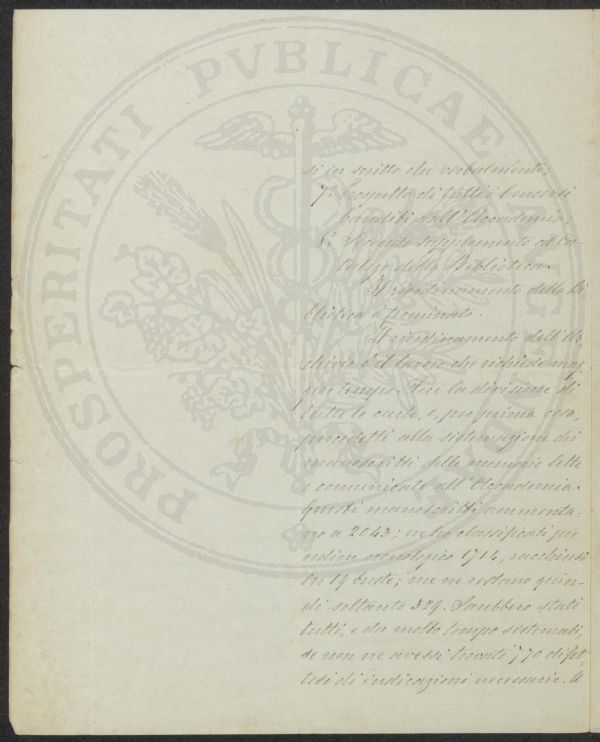 PROSPERITATI PVBLICAE AVGENDAE
si in scritto che verbalmente;
7.º Prospetto di tutti i Concorsi
banditi dall'Accademia;
8.º Secondo supplemento al Ca-
talogo della Biblioteca.
Il riordinamento della Bi-
blioteca è terminato.
Il riordinamento dell'Ar-
chivio è il lavoro che richiede mag-
gior tempo. Feci la divisione di
tutte le carte, e, per prima cosa,
procedetti alla sistemazione dei
manoscritti delle memorie lette
e comunicate all'Accademia.
Questi manoscritti ammonta-
no a 2043; ne ho classificati per
ordine cronologico 1714, racchiusi
in 19 buste; me ne restano quin-
di soltanto 329. Sarebbero stati
tutti, e da molto tempo sistemati,
se non ne avessi trovati 770 difet-
tosi di indicazioni necessarie. A